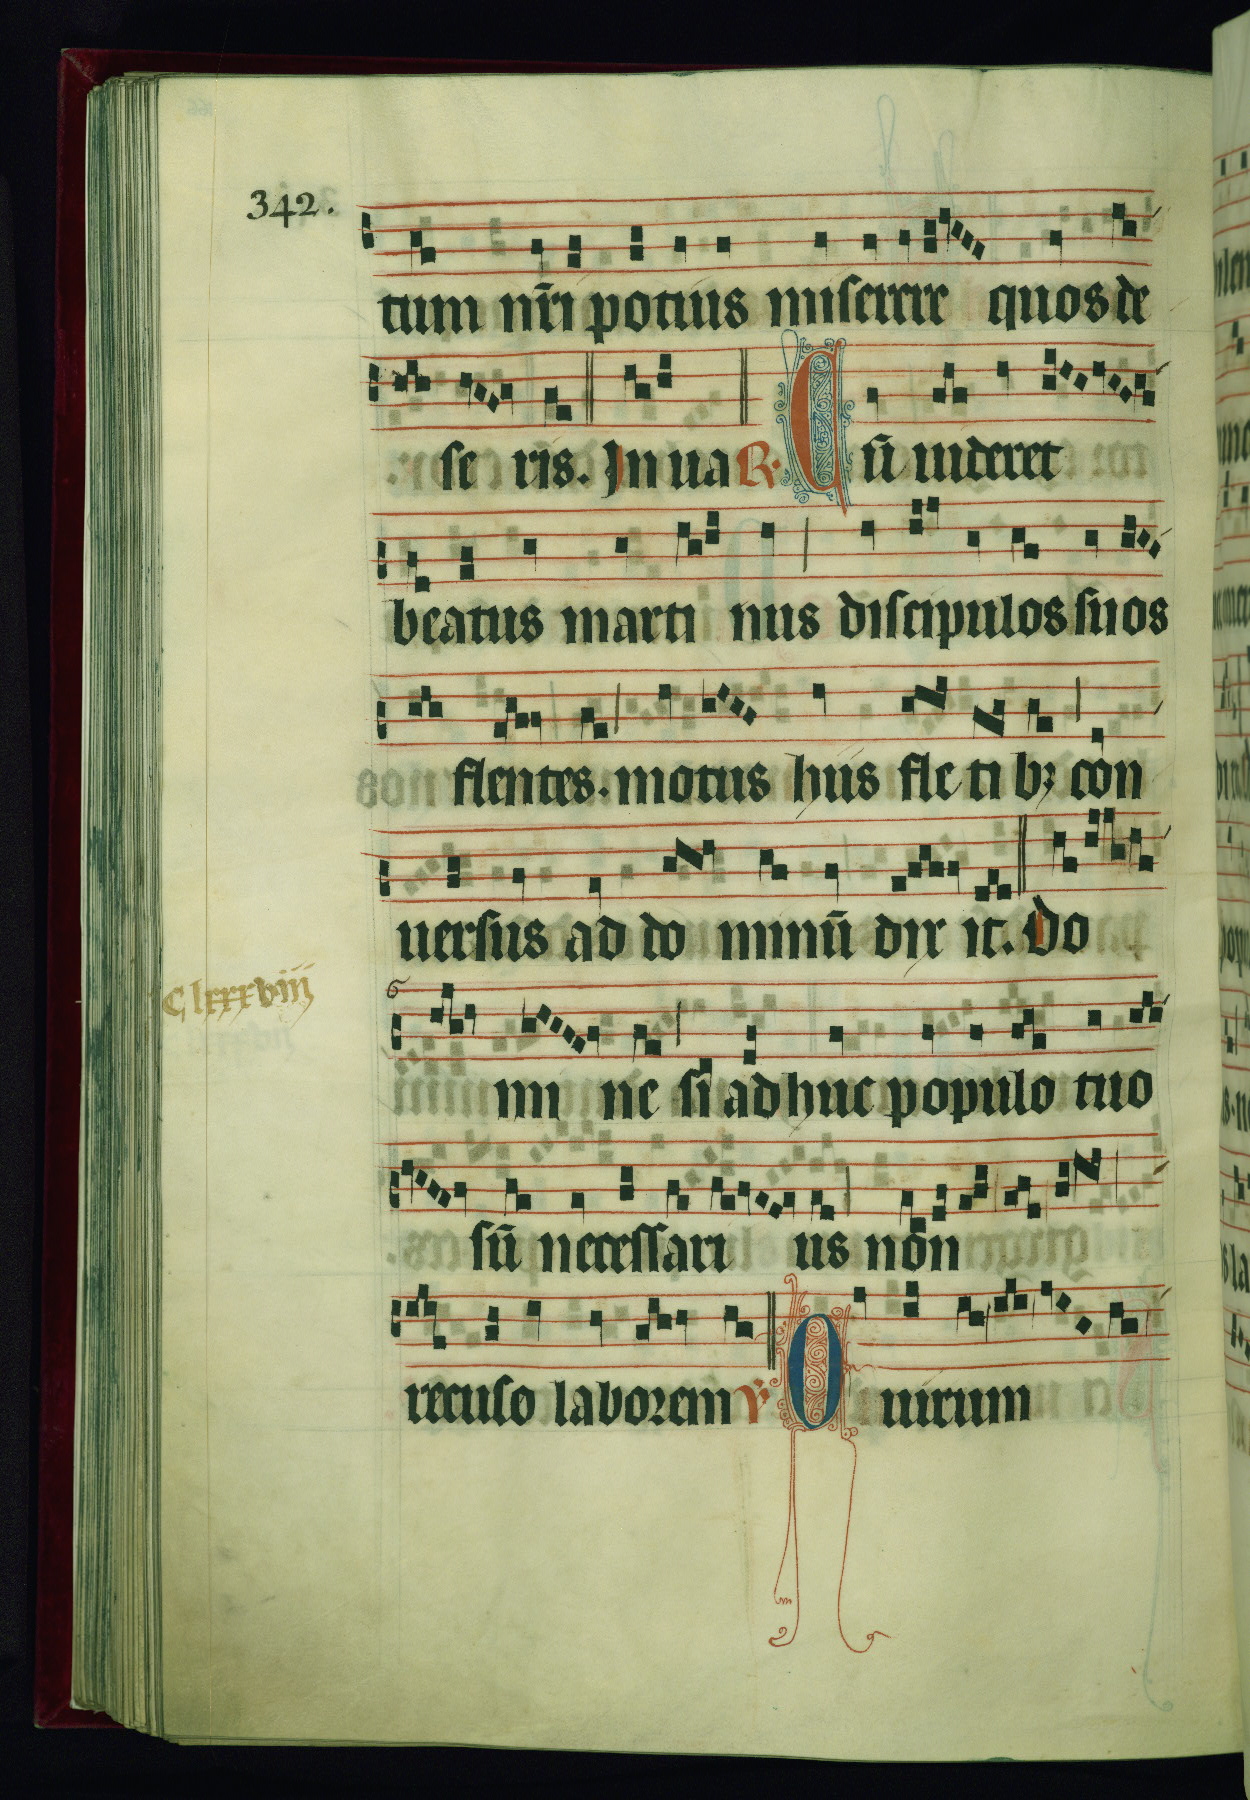 342.
tum nr̄i potius miserere quos de
se ris. In ua R. Cū uideret
beatus marti nus discipulos suos
flentes. motus hiis fle ti bꝫ con
uersus ad do minū dix it. Do
Clxxxviij
mi ne si adhuc populo tuo
sū necessari us non
recuso laborem v̄ O uirum